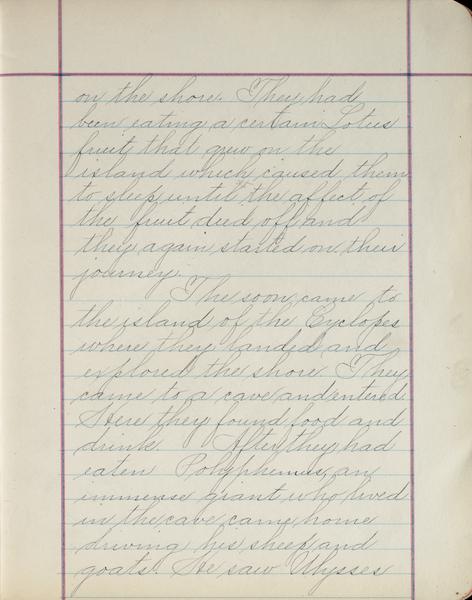 on the shore. They had
been eating a certain Lotus
fruit that grew on the
island which caused them
to sleep until the affect of
the fruit died off and
they again started on their
journey.
The soon came to
the island of the Cyclopes
where they landed and
explored the shore. They
came to a cave and entered
Here they found food and
drink. After they had
eaten Polyphemus, an
immense giant who lived
in the cave came home
driving his sheep and
goats. He saw Ulysses